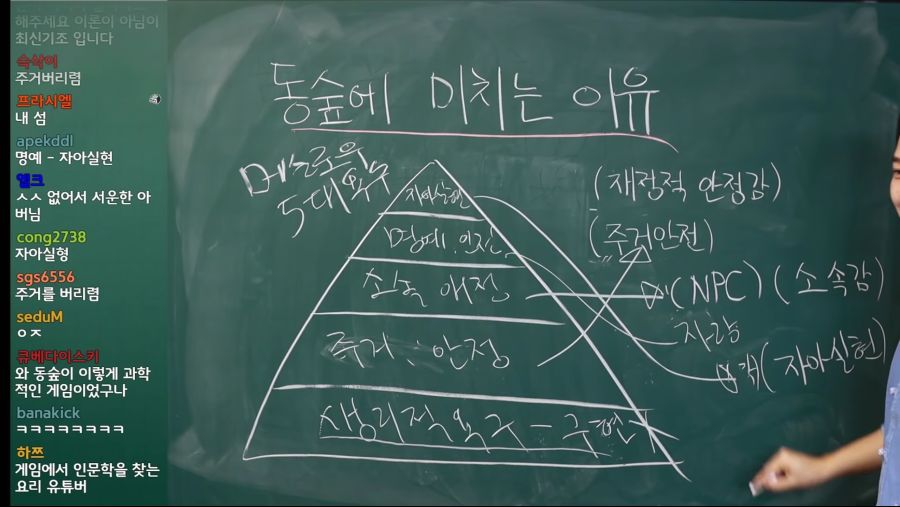 해주세요 이론이 아님이
최신기조 입니다
속삭이
주거버리렴
프라시엘
내 섬
apekddl
명예 - 자아실현
엘크
ㅅㅅ 없어서 서운한 아
버님
cong2738
자아실형
sgs6556
주거를 버리렴
seduM
ㅇㅈ
큐베다이스키
와 동숲이 이렇게 과학
적인 게임이었구나
banakick
ㅋㅋㅋㅋㅋㅋㅋㅋ
하쯔
게임에서 인문학을 찾는
요리 유튜버
동숲에 미치는 이유
매슬로우의
5대 욕구
자아실현
명예. 인정
소속 애정
주거. 안정
생리적 욕구 -
(재정적 안정감)
(주거안전)
(NPC) (소속감)
자랑
(자아실현)